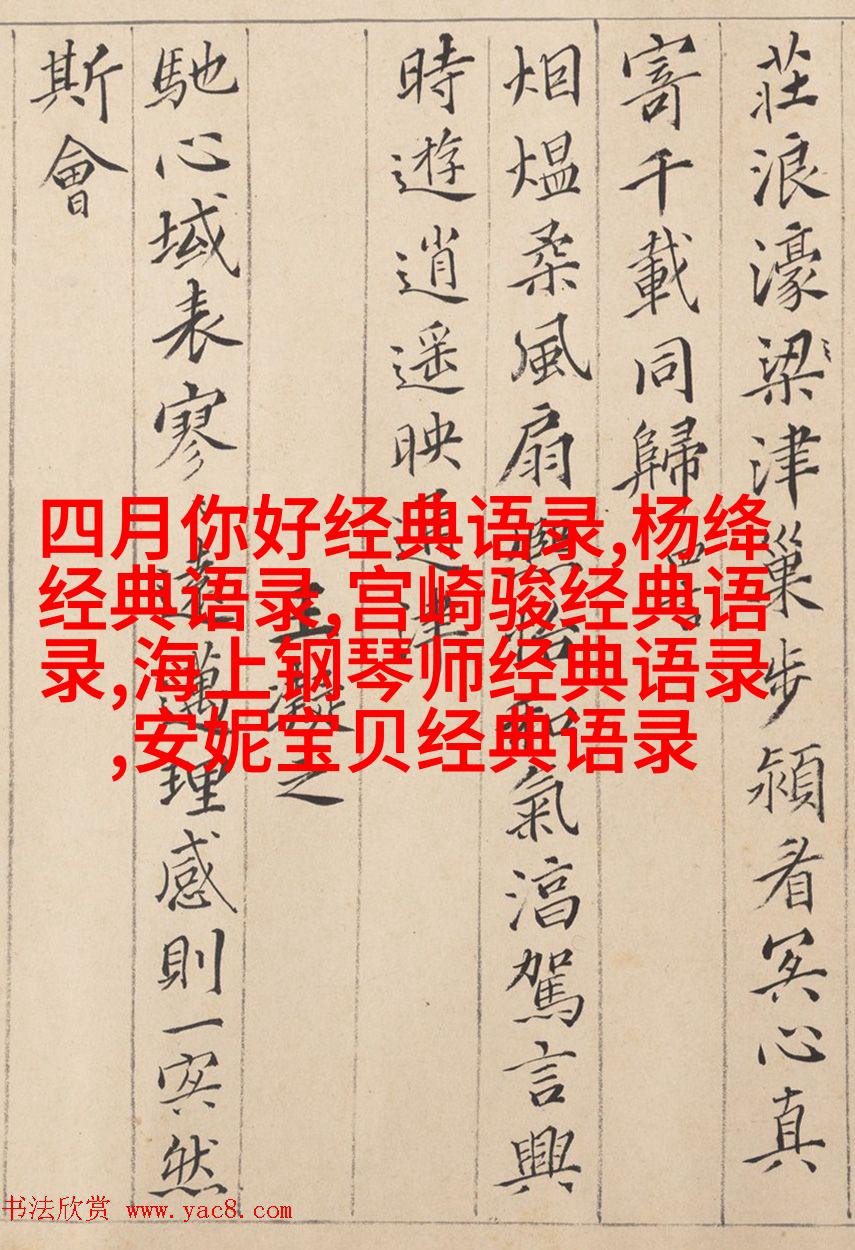 莊浪濠梁津巢步潁冥心真
寄千載同歸
烟煴柔風扇熙怡和氣淳駕言興
時遊逍遥映通津
王凝之
馳心域表寥遠邁理感則一冥然
斯會
四月你好经典语录,杨绛
经典语录,宫崎骏经典语
录,海上钢琴师经典语录
,安妮宝贝经典语录
书法欣赏 www.yac8.com